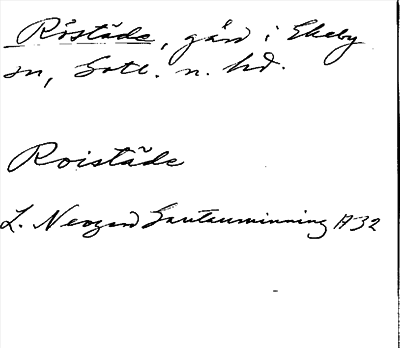 Röstäde, gård i Ekeby
sn, Gotl. n. hd.
Roistäde
L. Neogard Gautauminning 1932